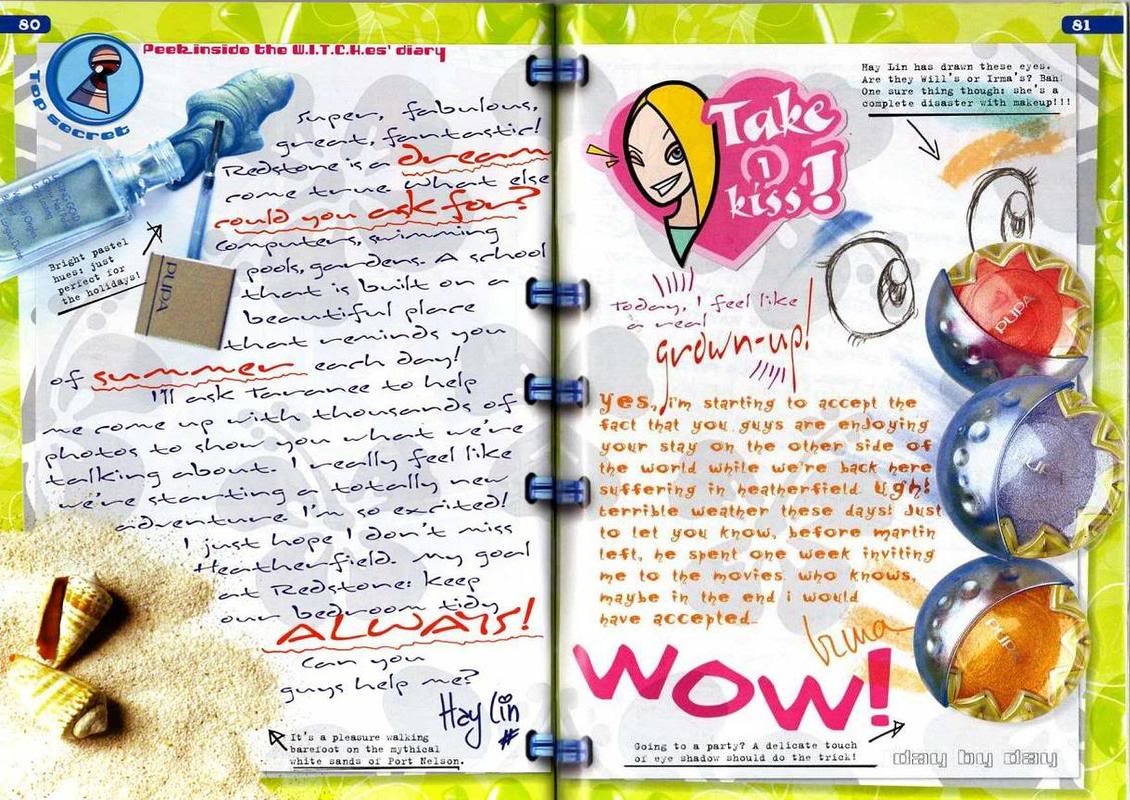 80
Peek inside the W.I.T.C.H.es' diary
Top secret
Super, fabulous,
great, fantastic!
Redstone is a dream
come true what else
could you ask for?
Computers, swimming
pools, gardens. A school
that is built on a
beautiful place
that reminds you
of summer each day!
I'll ask Taranee to help
me come up with thousands of
photos to show you what we're
talking about. I really feel like
we're starting a totally new
adventure I'm so excited!
I just hope I don't miss
Heatherfield. My goal
at Redstone: keep
our bedroom tidy
ALWAYS!
Can you
guys help me?
Hay Lin
Bright pastel
hues: just
perfect for
the holidays!
PUPA
It's a pleasure walking
barefoot on the mythical
white sands of Port Nelson.
81
Hay Lin has drawn these eyes.
Are they Will's or Irma's? Bah!
One sure thing though: she's a
complete disaster with makeup!!!
Take
1
kiss!
Today, I feel like
a real
grown-up!
Yes, I'm starting to accept the
fact that you guys are enjoying
your stay on the other side of
the world while we're back here
suffering in heatherfield. Ugh!
terrible weather these days! Just
to let you know, before martin
left, he spent one week inviting
me to the movies. who knows,
maybe in the end i would
have accepted...
Irma
PUPA
PUPA
WOW!
Going to a party? A delicate touch
of eye shadow should do the trick!
day by day